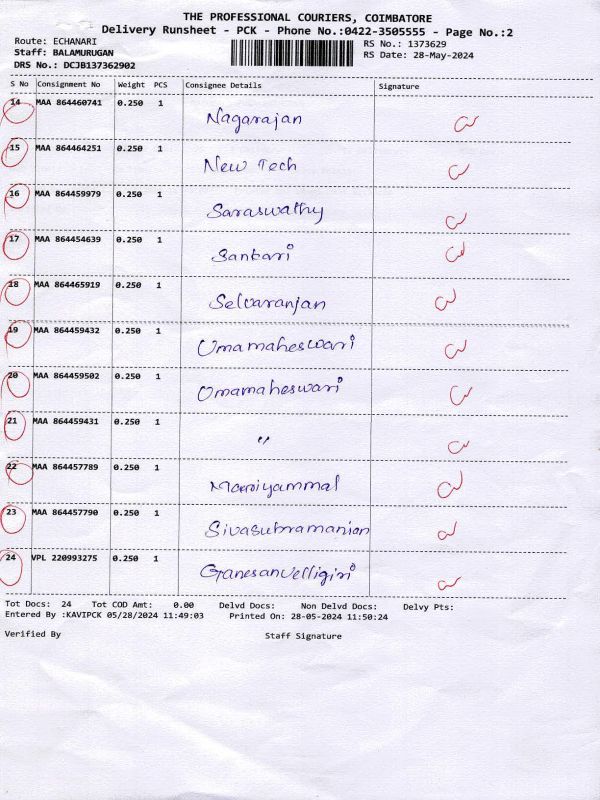 THE PROFESSIONAL COURIERS, COIMBATORE
Delivery Runsheet - PCK - Phone No.:0422-3505555 - Page No.:2
Route: ECHANARI RS No.: 1373629
Staff: BALAMURUGAN RS Date: 28-May-2024
DRS No.: DCJB137362902
S No Consignment No Weight PCS Consignee Details Signature
14 MAA 864460741 0.250 1 Nagarajan
15 MAA 864464251 0.250 1 New Tech
16 MAA 864459979 0.250 1 Saraswathy
17 MAA 864454639 0.250 1 Sankari
18 MAA 864465919 0.250 1 Selvaranjan
19 MAA 864459432 0.250 1 Umamaheswari
20 MAA 864459502 0.250 1 Umamaheswari
21 MAA 864459431 0.250 1 "
22 MAA 864457789 0.250 1 Mariyammal
23 MAA 864457790 0.250 1 Sivasubramanian
24 VPL 220993275 0.250 1 Ganesanvelligiri
Tot Docs: 24 Tot COD Amt: 0.00 Delvd Docs: Non Delvd Docs: Delvy Pts:
Entered By :KAVIPCK 05/28/2024 11:49:03 Printed On: 28-05-2024 11:50:24
Verified By Staff Signature